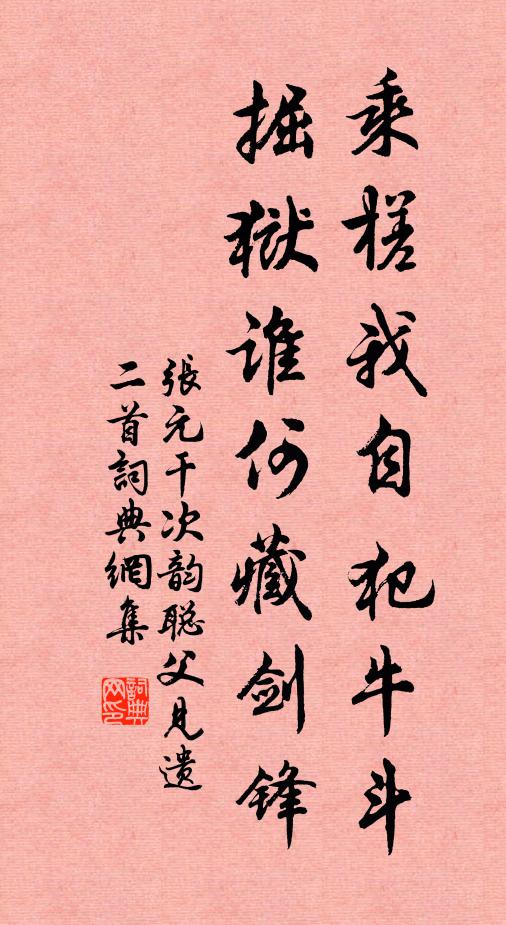 乘槎我自犯牛斗
掘獄谁何藏剑锋
張元干次韵聪父見遗
二首詞典網集
詞典網印